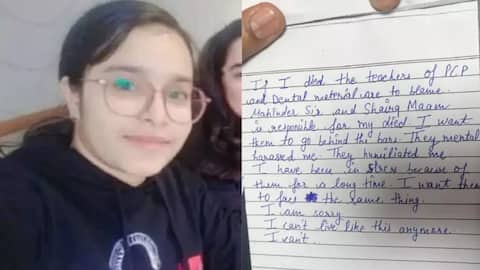 If I died the teachers of PCP
and Dental material are to blame.
Mahinder Sir and Shairg Maam
is responible for my died I want
them to go behind the bars. They mental
harassed me. They humiliated me
I have been in stress because of
them for a long time. I want them
to face the same thing.
I am sorry
I can't live like this anymore.
I can't.